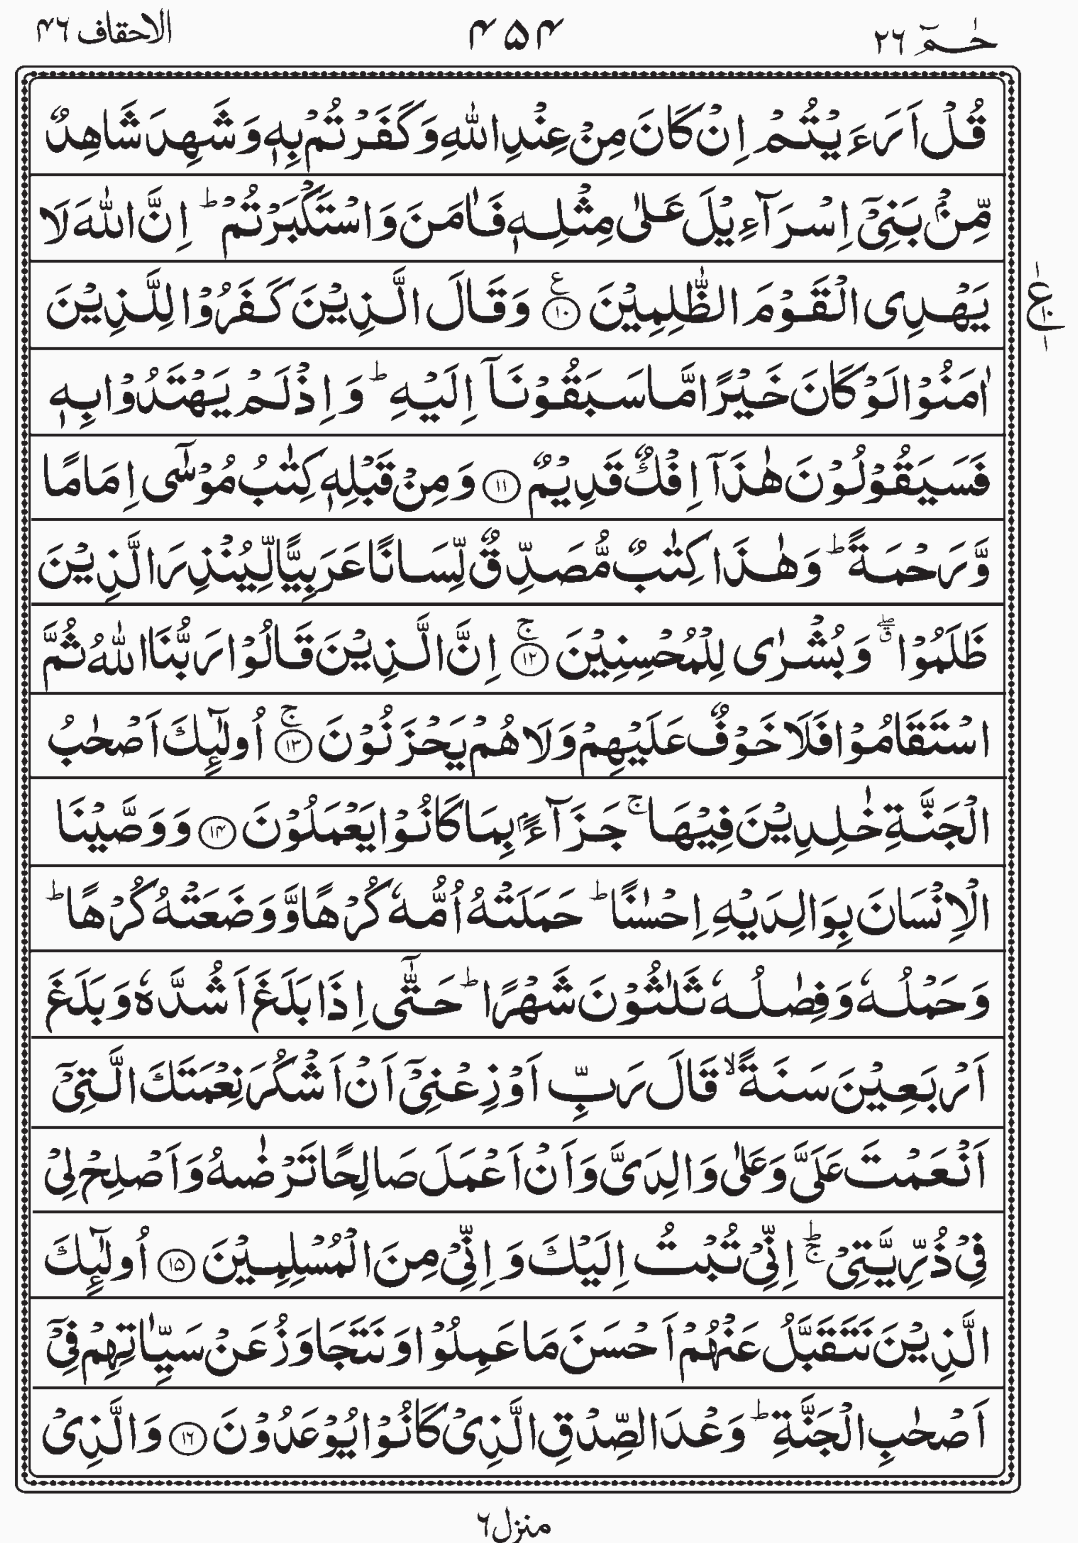 حٰمٓ ٢٦ ۴۵۴ الاحقاف ۴٦
قُلْ اَرَءَيْتُمْ اِنْ كَانَ مِنْ عِنْدِ اللّٰهِ وَكَفَرْتُمْ بِهٖ وَشَهِدَ شَاهِدٌ
مِّنْۢ بَنِىْۤ اِسْرَآءِيْلَ عَلٰى مِثْلِهٖ فَاٰمَنَ وَاسْتَكْبَرْتُمْ ؕ اِنَّ اللّٰهَ لَا
يَهْدِى الْقَوْمَ الظّٰلِمِيْنَ ۧ ﴿١٠﴾ وَقَالَ الَّذِيْنَ كَفَرُوْا لِلَّذِيْنَ
ع ١٠ ١
اٰمَنُوْا لَوْ كَانَ خَيْرًا مَّا سَبَقُوْنَاۤ اِلَيْهِ ؕ وَاِذْ لَمْ يَهْتَدُوْا بِهٖ
فَسَيَقُوْلُوْنَ هٰذَاۤ اِفْكٌ قَدِيْمٌ ﴿١١﴾ وَمِنْ قَبْلِهٖ كِتٰبُ مُوْسٰٓى اِمَامًا
وَّرَحْمَةً ؕ وَهٰذَا كِتٰبٌ مُّصَدِّقٌ لِّسَانًا عَرَبِيًّا لِّيُنْذِرَ الَّذِيْنَ
ظَلَمُوْا ۖۗ وَبُشْرٰى لِلْمُحْسِنِيْنَ ۚ ﴿١٢﴾ اِنَّ الَّذِيْنَ قَالُوْا رَبُّنَا اللّٰهُ ثُمَّ
اسْتَقَامُوْا فَلَا خَوْفٌ عَلَيْهِمْ وَلَا هُمْ يَحْزَنُوْنَ ۚ ﴿١٣﴾ اُولٰٓئِكَ اَصْحٰبُ
الْجَنَّةِ خٰلِدِيْنَ فِيْهَا ۚ جَزَآءًۢ بِمَا كَانُوْا يَعْمَلُوْنَ ﴿١۴﴾ وَوَصَّيْنَا
الْاِنْسَانَ بِوَالِدَيْهِ اِحْسٰنًا ؕ حَمَلَتْهُ اُمُّهٗ كُرْهًا وَّوَضَعَتْهُ كُرْهًا ؕ
وَحَمْلُهٗ وَفِصٰلُهٗ ثَلٰثُوْنَ شَهْرًا ؕ حَتّٰٓى اِذَا بَلَغَ اَشُدَّهٗ وَبَلَغَ
اَرْبَعِيْنَ سَنَةً ۙ قَالَ رَبِّ اَوْزِعْنِىْۤ اَنْ اَشْكُرَ نِعْمَتَكَ الَّتِىْۤ
اَنْعَمْتَ عَلَىَّ وَعَلٰى وَالِدَىَّ وَاَنْ اَعْمَلَ صَالِحًا تَرْضٰٮهُ وَاَصْلِحْ لِىْ
فِىْ ذُرِّيَّتِىْ ؕۚ اِنِّىْ تُبْتُ اِلَيْكَ وَاِنِّىْ مِنَ الْمُسْلِمِيْنَ ﴿١۵﴾ اُولٰٓئِكَ
الَّذِيْنَ نَتَقَبَّلُ عَنْهُمْ اَحْسَنَ مَا عَمِلُوْا وَنَتَجَاوَزُ عَنْ سَيِّاٰتِهِمْ فِىْۤ
اَصْحٰبِ الْجَنَّةِ ؕ وَعْدَ الصِّدْقِ الَّذِىْ كَانُوْا يُوْعَدُوْنَ ﴿١٦﴾ وَالَّذِىْ
منزل ٦